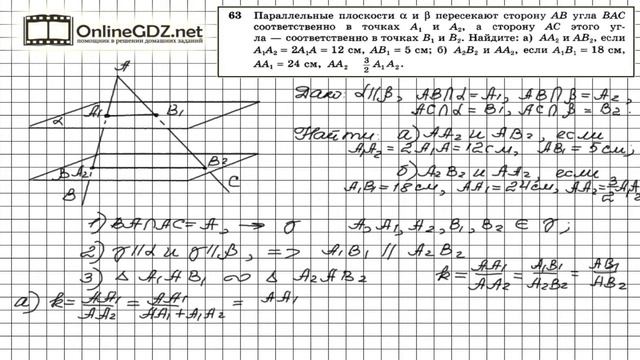 OnlineGDZ.net
помощник в решении домашних заданий
63 Параллельные плоскости α и β пересекают сторону AB угла BAC
соответственно в точках A₁ и A₂, а сторону AC этого уг-
ла — соответственно в точках B₁ и B₂. Найдите: а) AA₂ и AB₂, если
A₁A₂ = 2A₁A = 12 см, AB₁ = 5 см; б) A₂B₂ и AA₂, если A₁B₁ = 18 см,
AA₁ = 24 см, AA₂ 3/2 A₁A₂.
A
A₁ B₁
α
β A₂ B₂
B C
Дано: α∥β, AB∩α = A₁, AB∩β = A₂,
AC∩α = B₁, AC∩β = B₂.
Найти: а) AA₂ и AB₂, если
A₁A₂ = 2A₁A = 12см, AB₁ = 5см;
б) A₂B₂ и AA₂, если
A₁B₁ = 18см, AA₁ = 24см, AA₂ = 3/2 A₁A₂
1) BA∩AC = A, → γ A, A₁, A₂, B₁, B₂ ∈ γ;
2) γ∦α и γ∦β, => A₁B₁ ∥ A₂B₂
3) Δ A₁AB₁ ∞ Δ A₂AB₂ k = AA₁/AA₂ = A₁B₁/A₂B₂ = AB₁/AB₂
а) k = AA₁/AA₂ = AA₁/AA₁+A₁A₂ = AA₁